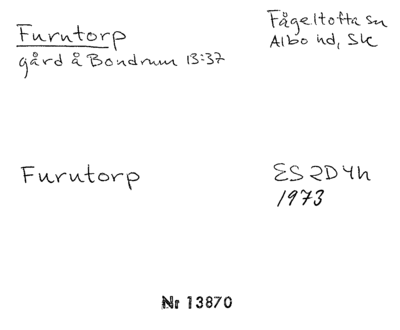 Furutorp
gård å Bondrum 13:37
Fågeltofta sn
Albo hd, Sk
Furutorp
ES 2D4h
1973
Nr 13870